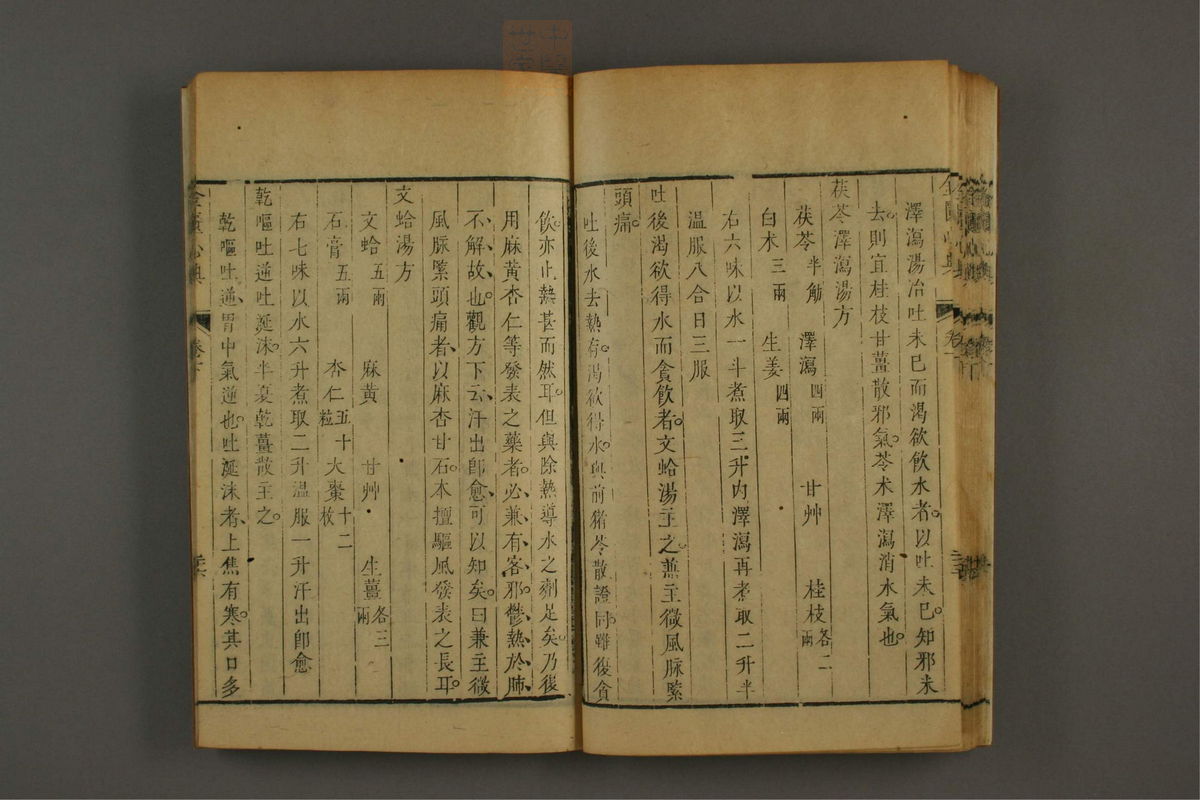 澤瀉湯治吐未已而渴欲飲水者。以吐未已。知邪未
去。則宜桂枝甘薑散邪氣。苓术澤瀉消水氣也。
茯苓澤瀉湯方
茯苓半觔　澤瀉四兩　甘艸　桂枝各二兩
白术三兩　生姜四兩
右六味以水一斗煮取三升內澤瀉再煮取二升半
溫服八合日三服
吐後渴欲得水而貪飲者。文蛤湯主之。兼主微風脉緊
頭痛。
吐後水去熱存。渴欲得水。與前猪苓散證同。雖復貪
飲。亦止熱甚而然耳。但與除熱導水之劑足矣。乃復
用麻黃杏仁等發表之藥者。必兼有客邪。鬱熱於肺、
不解故也。觀方下云。汗出卽愈可以知矣。曰兼主微
風脉緊頭痛者、以麻杏甘石。本擅驅風發表之長耳。
文蛤湯方
文蛤五兩　麻黃　甘艸　生薑各三兩
石膏五兩　杏仁五十粒　大棗十二枚
右七味以水六升煮取二升溫服一升汗出卽愈
乾嘔吐逆吐涎沫。半夏乾薑散主之。
乾嘔吐逆、胃中氣逆也。吐涎沫者、上焦有寒。其口多
金匱心典
卷下